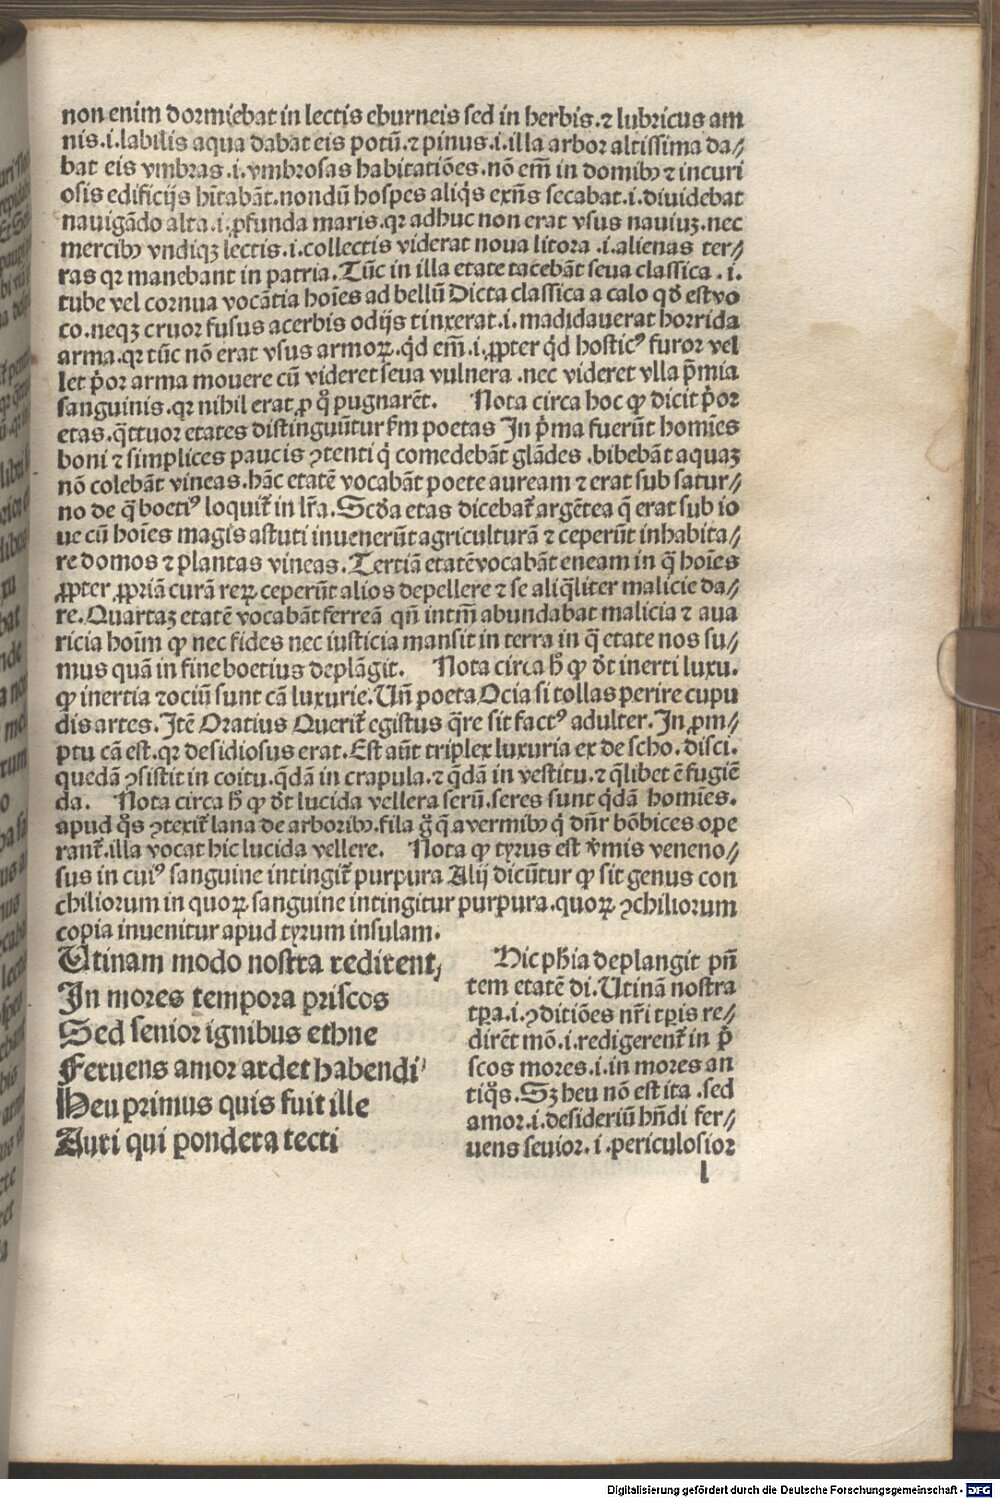 non enim dormiebat in lectis eburneis sed in herbis.⁊ lubricus am
nis.i.labilis aqua dabat eis potū.⁊ pinus.i.illa arbor altissima da⸗
bat eis vmbras.i.vmbrosas habitatiōes.nō em̄ in domibꝰ ⁊ incuri
osis edificijs hītabāt.nondū hospes aliqs̄ exn̄s secabat.i.diuidebat
nauigādo alta.i.ꝓfunda maris.qr adhuc non erat vsus nauiuꝫ.nec
mercibꝰ vndiqꝫ lectis.i.collectis viderat noua litora .i.alienas ter⸗
ras qr manebant in patria.Tūc in illa etate tacebāt seua classica .i.
tube vel cornua vocātia hoīes ad bellū Dicta classica a calo qđ est vo
co.neqꝫ cruor fusus acerbis odijs tinxerat.i.madidauerat horrida
arma.qr tūc nō erat vsus armoꝝ.qd̄ em̄.i.ꝓpter qd̄ hosticꝰ furor vel
let p̄or arma mouere cū videret seua vulnera .nec videret vlla p̄mia
sanguinis.qr nihil erat ꝓ q̊ pugnarēt. Nota circa hoc ꝙ dicit p̄or
etas.q̄ttuor etates distinguūtur fm̄ poetas In p̄ma fuerūt homīes
boni ⁊ simplices paucis ꝯtenti q̇ comedebāt glādes .bibebāt aquaꝫ
nō colebāt vineas.hāc etatē vocabāt poete auream ⁊ erat sub satur⸗
no de q̄ boetiꝰ loquit̄ in lr̄a.Scđa etas dicebat̄ argētea q̄ erat sub io
ue cū hoīes magis astuti inuenerūt agriculturā ⁊ ceperūt inhabita⸗
re domos ⁊ plantas vineas.Tertiā etatē vocabāt eneam in q̄ hoīes
ꝓpter ꝓpriā curā reꝝ ceperūt alios depellere ⁊ se aliq̄liter malicie da⸗
re.Quartaꝫ etatē vocabāt ferreā qn̄ intm̄ abundabat malicia ⁊ aua
ricia hoīm ꝙ nec fides nec iusticia mansit in terra in q̄ etate nos su⸗
mus quā in fine boetius deplāgit. Nota circa h̄ ꝙ dr̄ inerti luxu.
ꝙ inertia ⁊ ociū sunt cā luxurie.Un̄ poeta Ocia si tollas perire cupi
dis artes.Itē Oratius Querit̄ egistus q̄re sit factꝰ adulter.In ꝓm⸗
ptu cā est.qr desidiosus erat.Est aūt triplex luxuria ex de scho.disci.
quedā ꝯsistit in coitu.q̄dā in crapula.⁊ q̄dā in vestitu.⁊ q̄libet ē fugiē
da. Nota circa h̄ ꝙ dr̄ lucida vellera serū.seres sunt q̇dā homīes.
apud q̊s ꝯtexit̄ lana de arboribꝰ.fila g̊ q̄ a vermibꝰ q̇ dn̄r bōbices ope
rant̄.illa vocat hic lucida vellere. Nota ꝙ tyrus est v̄mis veneno⸗
sus in cuiꝰ sanguine intingit̄ purpura Alij dicūtur ꝙ sit genus con
chiliorum in quoꝝ sanguine intingitur purpura.quoꝝ ꝯchiliorum
copia inuenitur apud tyrum insulam.
Utinam modo nostra redirent,
In mores tempora priscos
Sed senior ignibus ethne
Feruens amor ardet habendi
Heu primus quis fuit ille
Auri qui pondera tecti
Hic ph̄ia deplangit pn̄
tem etatē di.Utinā nostra
tꝑa.i.ꝯditiōes nr̄i tꝑis re⸗
dirēt mō.i.redigerent̄ in p̄
scos mores.i.in mores an
tiq̊s.Sꝫ heu nō est ita .sed
amor.i.desideriū hn̄di fer⸗
uens seuior.i.periculosior
l
Digitalisierung gefördert durch die Deutsche Forschungsgemeinschaft - DFG